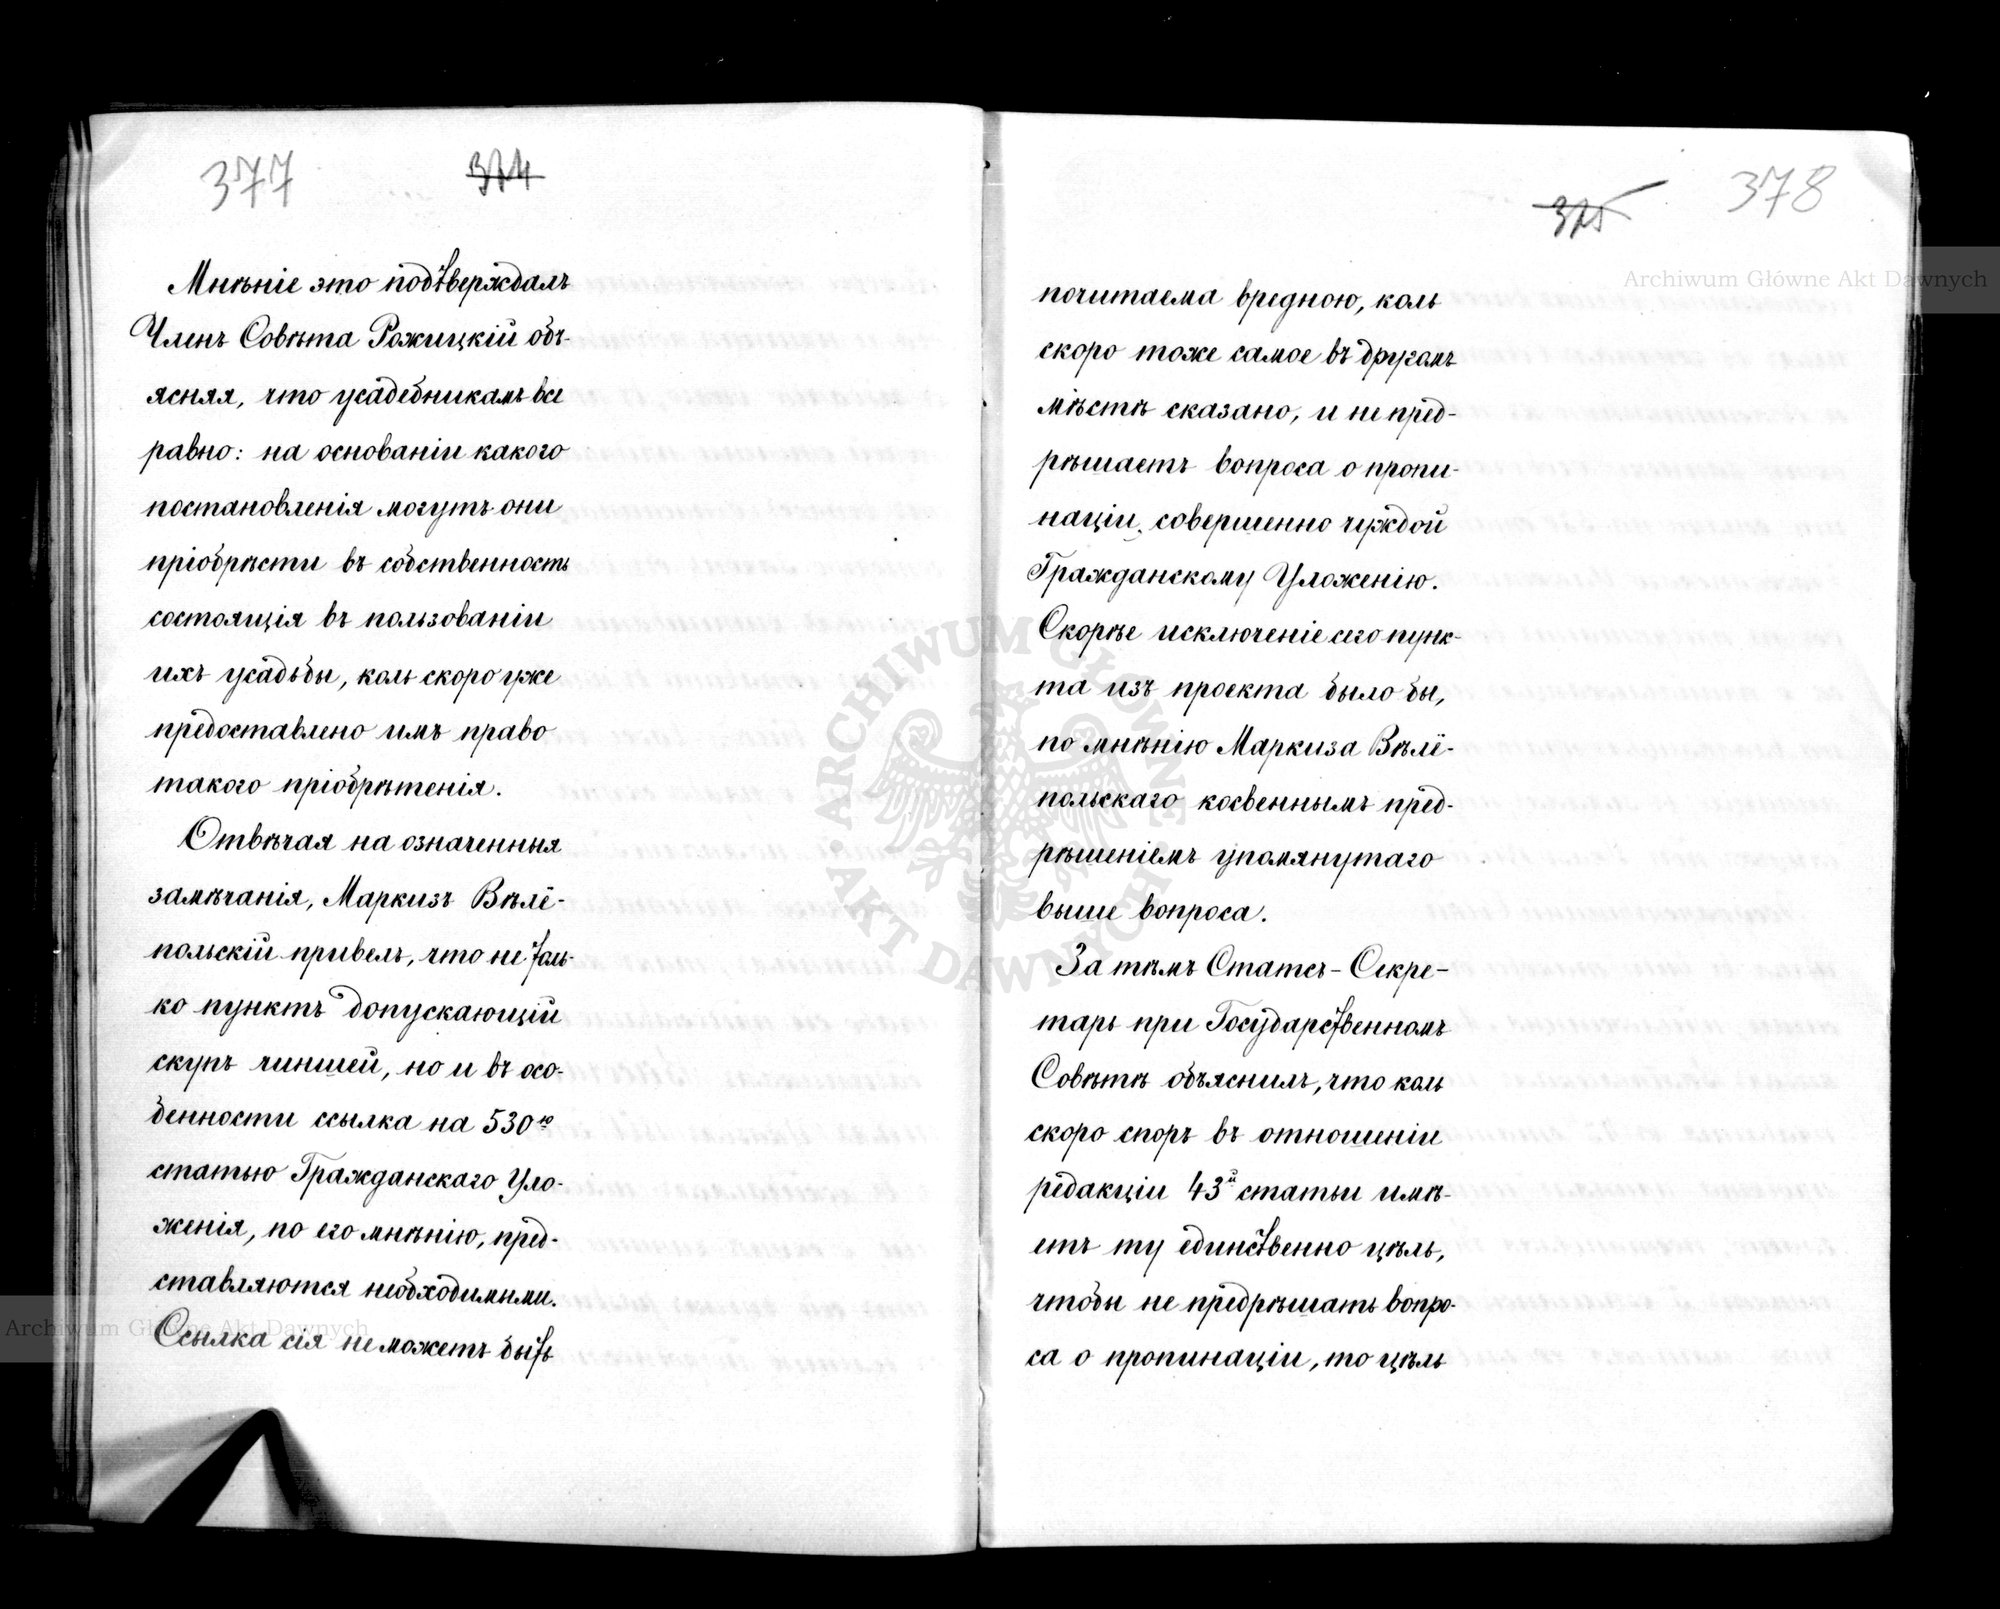 377
374
Мнѣніе это подтверждалъ
Членъ Совѣта Рожицкій объ-
ясняя, что усадебникамъ все
равно: на основаніи какого
постановленія могутъ они
пріобрѣсти въ собственность
состоящія въ пользованіи
ихъ усадьбы, коль скоро уже
предоставлено имъ право
такого пріобрѣтенія.
Отвѣчая на означенныя
замѣчанія, Маркизъ Вѣлё-
польскій привелъ, что не толь-
ко пунктъ допускающій
скупъ чиншей, но и въ осо-
бенности ссылка на 530ю
статью Гражданскаго Уло-
женія, по его мнѣнію, пред-
ставляются необходимыми.
Ссылка сія не можетъ быть
378
375
почитаема вредною, коль
скоро тоже самое въ другомъ
мѣстѣ сказано, и не пред-
рѣшаетъ вопроса о пропи-
націи, совершенно чуждой
Гражданскому Уложенію.
Скорѣе исключеніе сего пунк-
та изъ проекта было бы,
по мнѣнію Маркиза Вѣлё-
польскаго косвеннымъ пред-
рѣшеніемъ упомянутаго
выше вопроса.
За тѣмъ Статсъ-Секре-
тарь при Государственномъ
Совѣтѣ объяснилъ, что коль
скоро споръ въ отношеніи
редакціи 43й статьи имѣ-
етъ ту единственно цѣль,
чтобы не предрѣшать вопро-
са о пропинаціи, то цѣль
Archiwum Główne Akt Dawnych
ARCHIWUM GŁÓWNE AKT DAWNYCH
Archiwum Główne Akt Dawnych